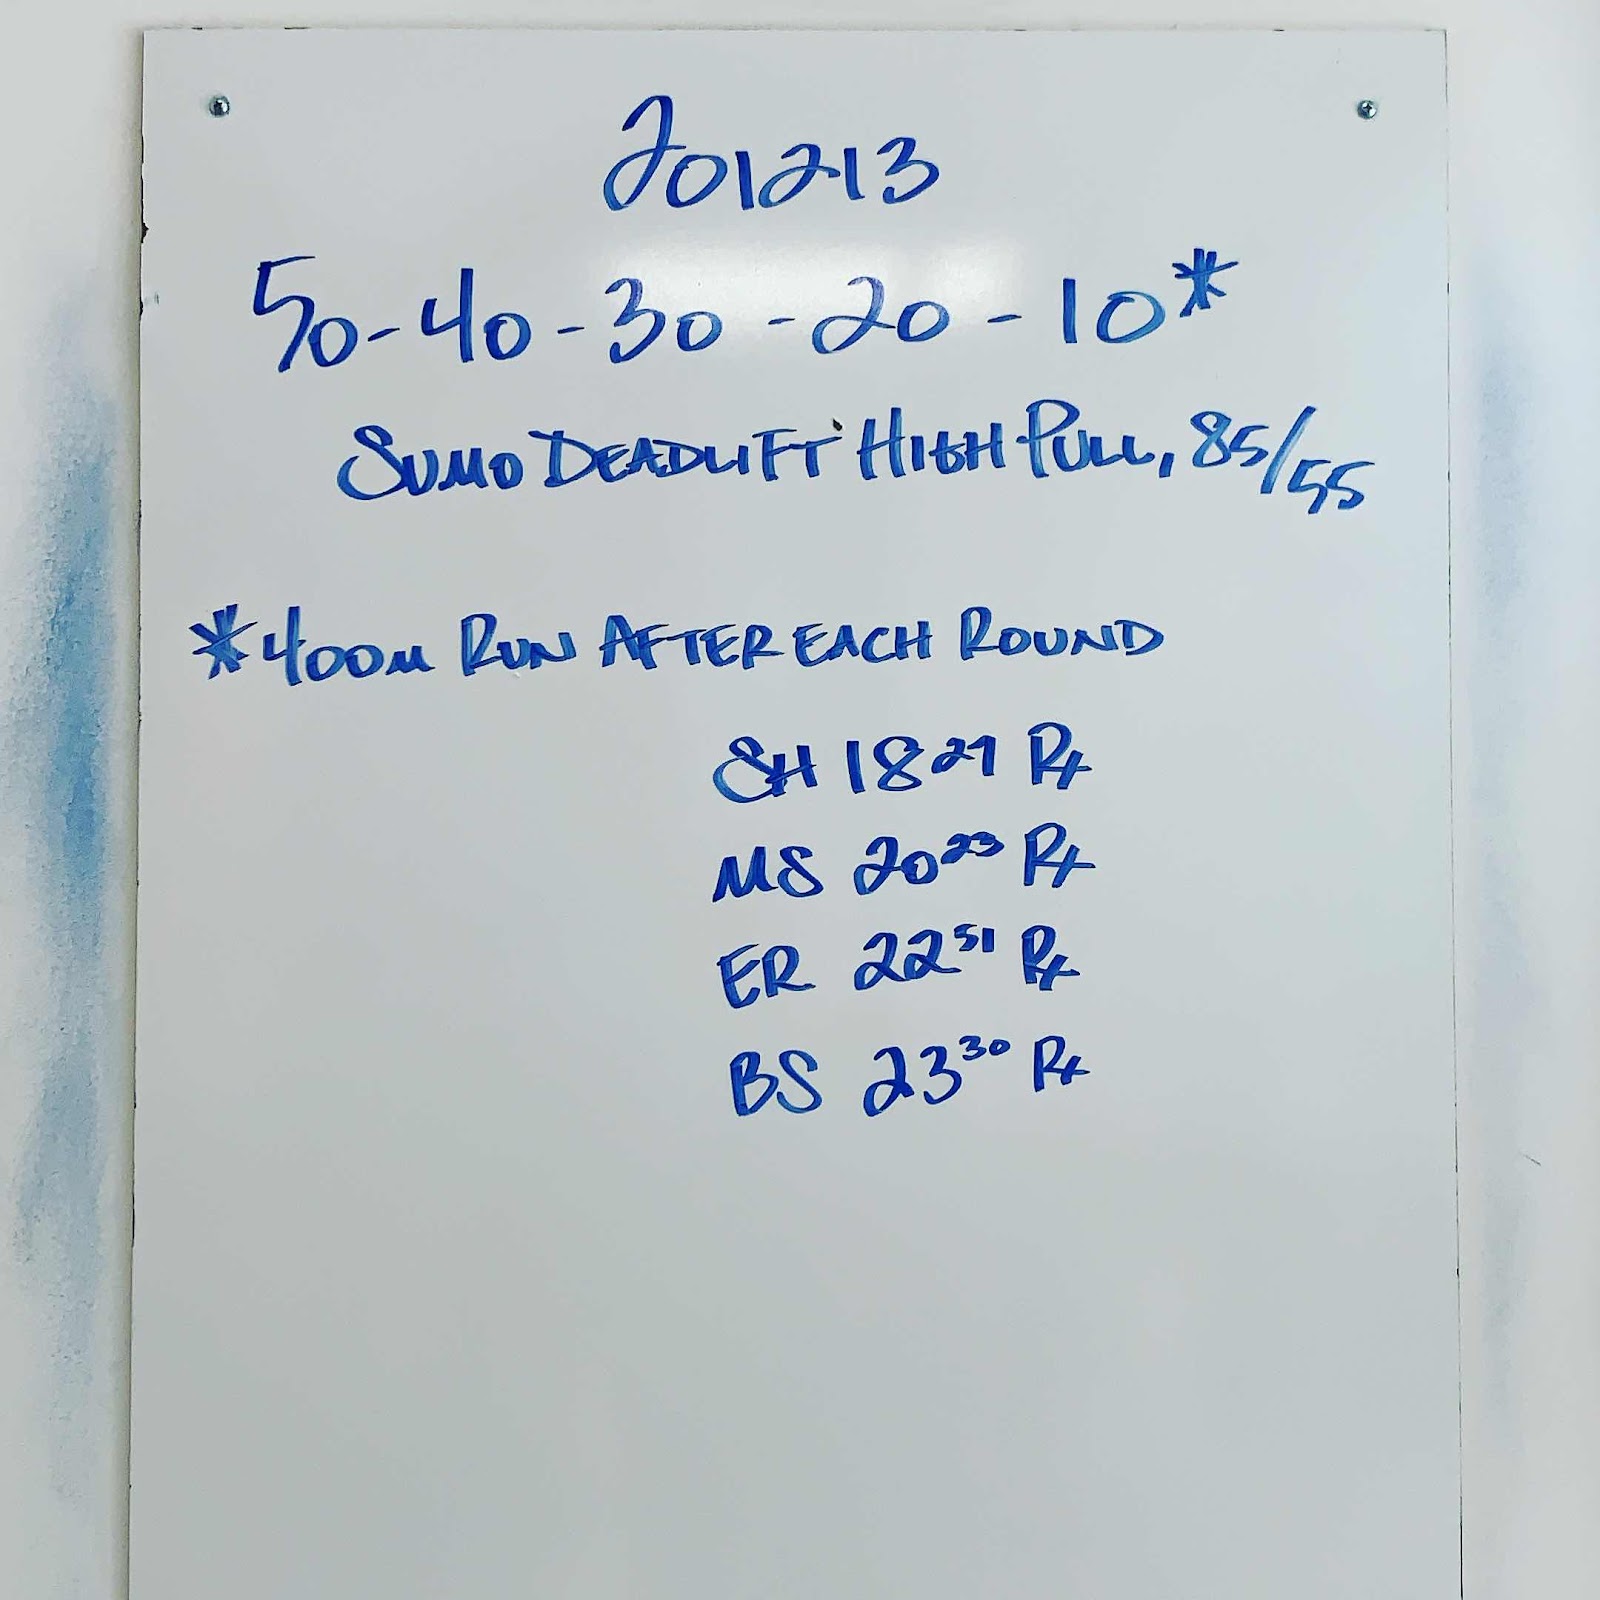 201213
50-40-30-20-10*
SUMO DEADLIFT HIGH PULL, 85/55
*400M RUN AFTER EACH ROUND
SH 18 29 Rx
MS 20 23 Rx
ER 22 51 Rx
BS 23 30 Rx